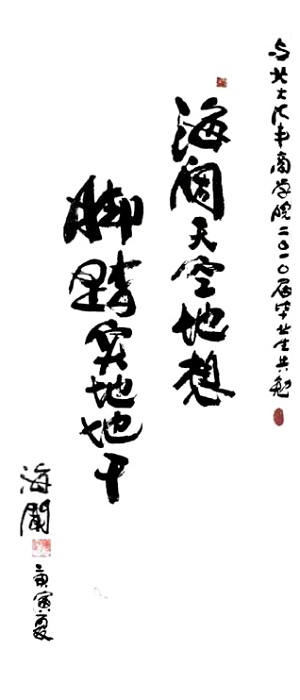 与北大汇丰商学院二〇一〇届毕业生共勉
海阔天空地想
脚踏实地地干
海闻
庚寅夏